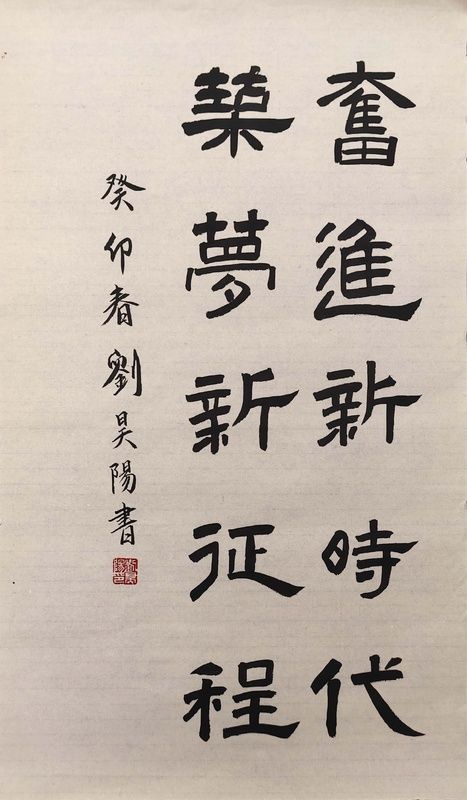 奮進新時代
築夢新征程
癸卯春劉昊陽書